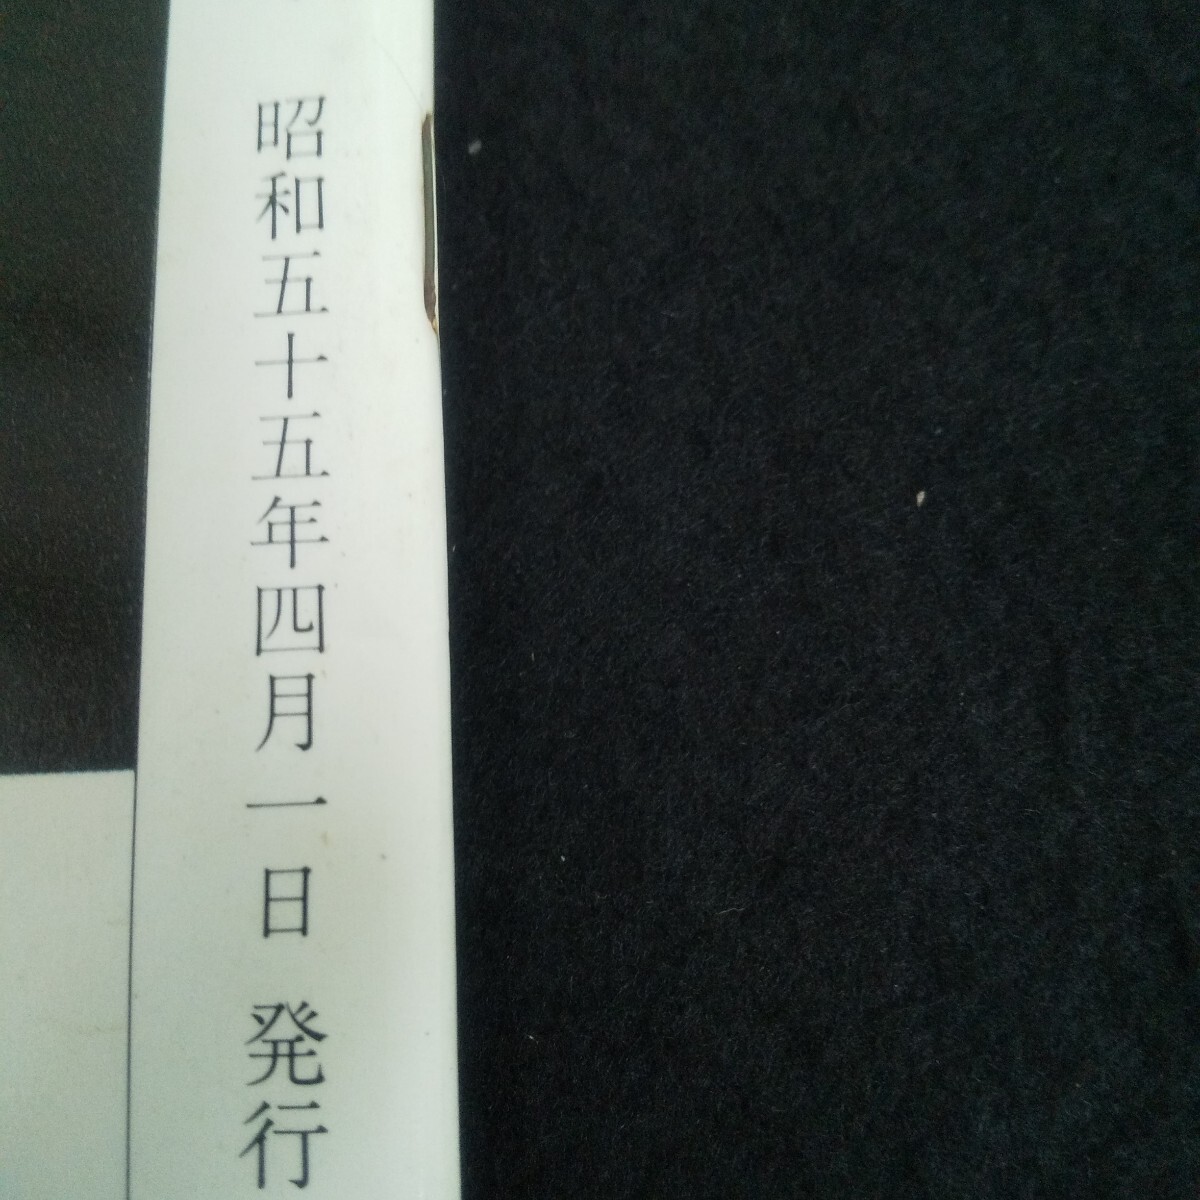 昭和五十五年四月一日 発行